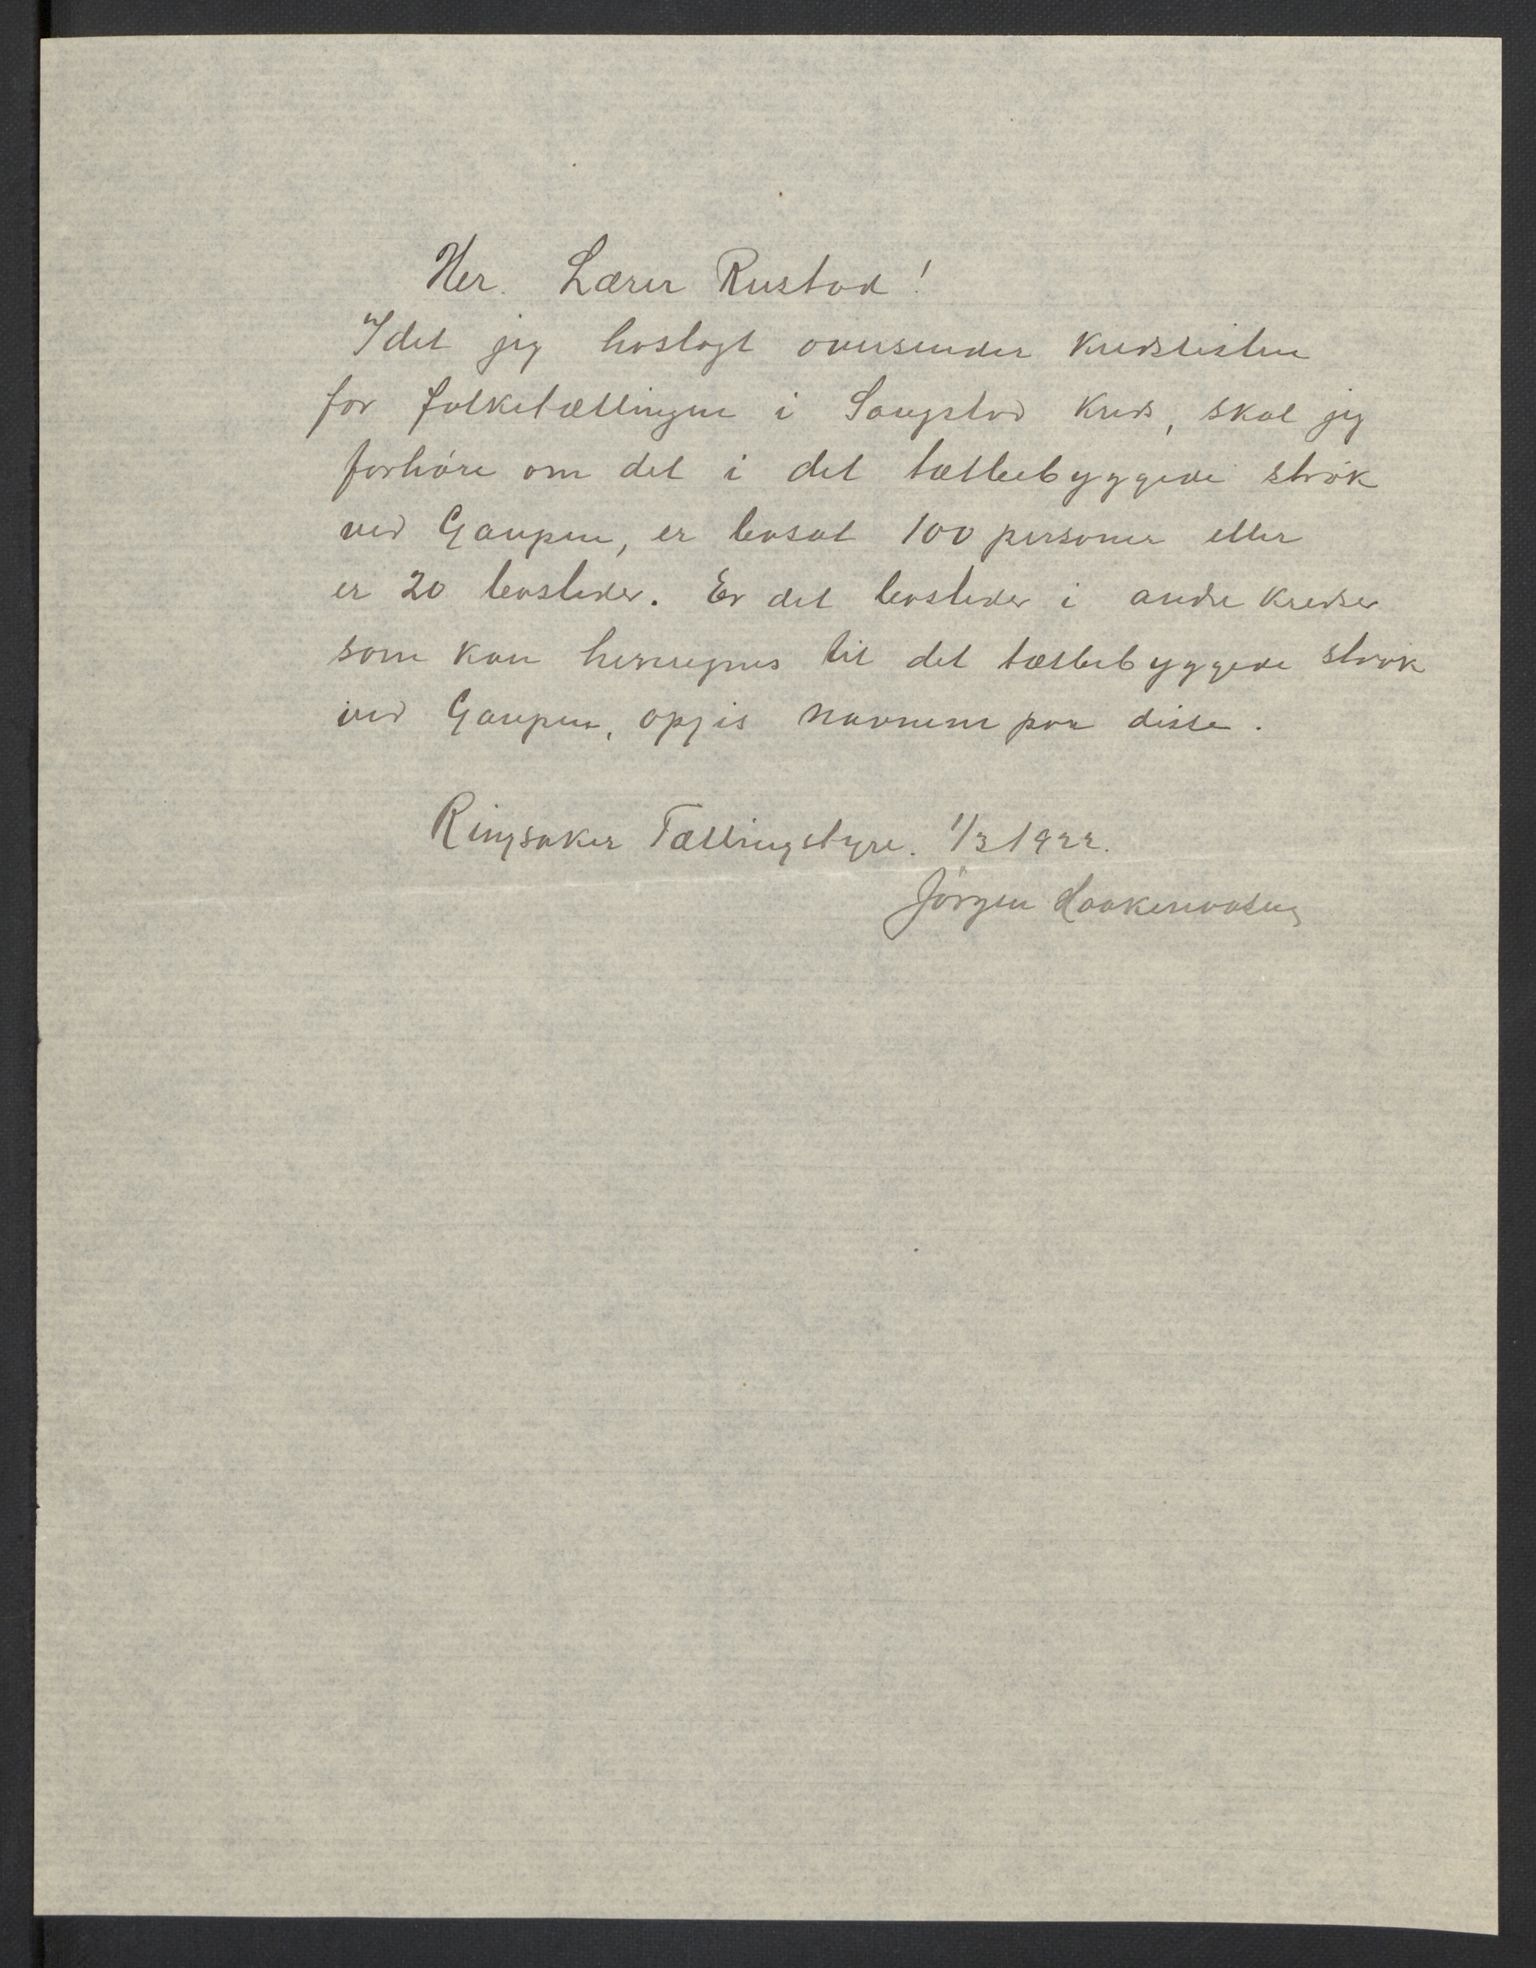 Her. Lærer Rustad!
Idet jeg hoslagt oversender kredslisten
for folketællingen i Saugstad kreds, skal jeg
forhöre om det i det tætbebyggede strök
ved Gaupen, er bosat 100 personer eller
er 20 bosteder. Er det bosteder i andre kredser
som kan henregnes til det tætbebyggede strök
ved Gaupen, opgis navnene paa disse.
Ringsaker Tællingstyre. 1/3 1922.
Jörgen Haakenaasen